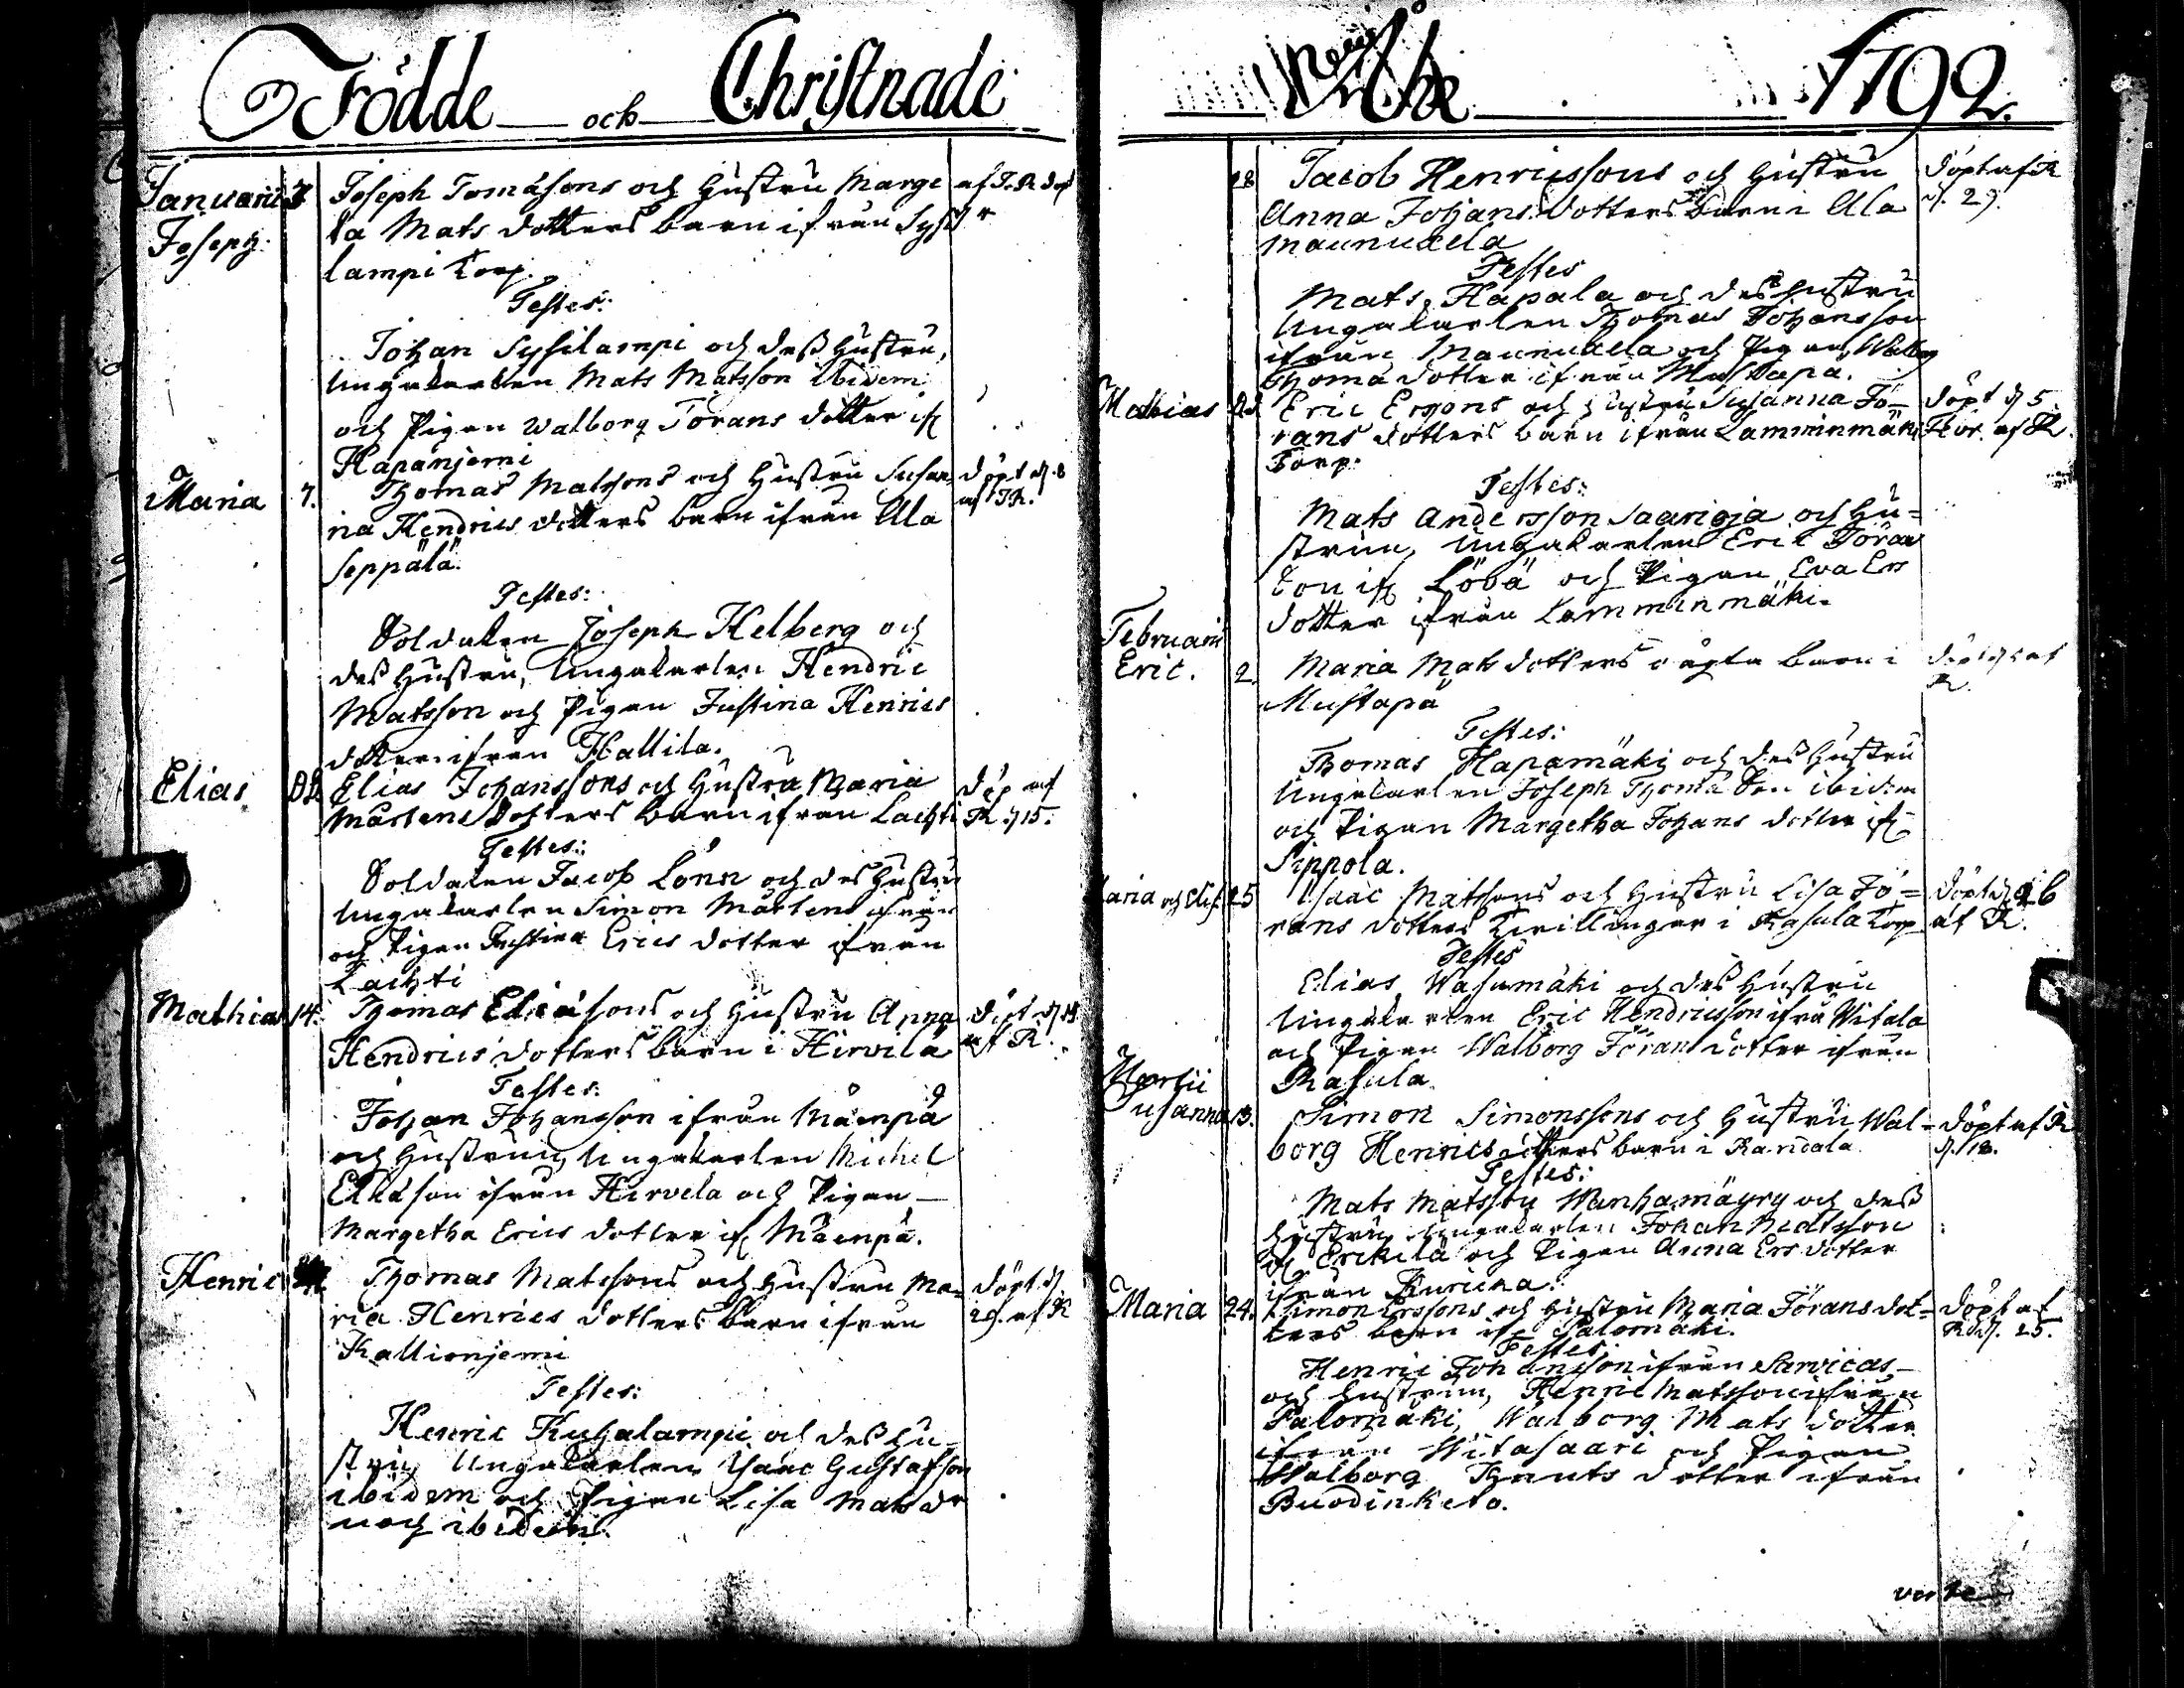 Födde och Christnade
Januarii 3 Joseph Tomäsons och Hustru Marge af J.R. döpt
Joseph: ta Mats dotters barn ifrån Sysi
lampi Torp.
Testes:
Johan Sysilampi och dess Hustru,
Ungakarlen Mats Matsson ibidem
och Pigan Walborg Jörans dotter if
Hapanjemi
Maria 7. Thomas Matssons och Hustru Susan döpt d. 8
na Hendrics dotters barn ifrån Ala af JR.
Seppälä.
Testes:
Soldaten Joseph Helberg och
des Hustru, Ungakarlen Hendric
Matsson och Pigan Justina Henrics
dotter ifrån Hallila.
Elias Elias Johanssons och Hustru Maria döp af
Mårtens Dotters barn ifrån Lachti R d 15.
Testes:
Soldaten Jacob Lönn och des Hustru
Ungakarlen Simon Mårtens ifrån
och Pigan Justina Erics dotter ifrån
Lachti
Mathias 14. Thomas Eliäsons och Hustru Anna döpt d
Hendrics dotters barn i Hirvela af R.
Testes:
Johan Johansson ifrån Mäenpä
och Hustrun, Ungakarlen Michel
Eliäson ifrån Hirvela och Pigan
Margetha Erics dotter if Mäenpä.
Henric Thomas Matssons och Hustru Ma= döpt d.
ria Henrics dotters barn ifrån 29. af R
Kallionjemi
Testes:
Henric Kuhalampi och des Hu
stru, Ungakarlen Isaac Gustafson
ibidem och Pigan Lisa Mats dr
och ibidem.
1792.
28 Jacob Henricssons och Hustru Döpt af R
Anna Johans Dotters barn i Ala d. 29.
Maunuxela
Testes
Mats Hapala och des Hustru
Ungakarlen Thomas Johansson
ifrån Maunuxela och Pigan Walborg
Thomä dotter ifrån Mustapä.
Mathias Eric Ersons och Hustru Susanna Jö- döpt d 5
rans dotters barn ifrån Lamminmäki af R.
Torp.
Testes:
Mats Andersson Saarioja och Hu=
strun, Ungakarlen Eric Jöran
son if Löbä och Pigan Eva Ers
dotter ifrån Lamminmäki.
Februarii
Eric. 2. Maria Mats dotters oägta barn i
Mustapä
Testes:
Thomas Hapamäki och des Hustru
Ungakarlen Joseph Thomä Son ibidem
och Pigan Margetha Johans dotter if
Sippola.
Maria och 25 Isaac Matssons och Hustru Lisa Jö= Döpt d 26
rans dotters Tvillingar i Rasula Torp af R.
Testes
Elias Wasumäki och des Hustru
Ungakarlen Eric Hendricsson ifrå Witala
och Pigan Walborg Jörans dotter ifrån
Rasula.
Martii
Susanna 13. Simon Simonssons och Hustru Wal= döpt af R
borg Henrics dotters barn i Randala d. 18.
Testes:
Mats Matsson Wanhamäyry och dess
Hustru, Ungakarlen Johan Matsson
if Erkilä och Pigan Anna Ers dotter
ifrån Kuricka.
Maria 24. Simon Erssons och Hustru Maria Jörans dot= döpt af
ters barn if Palomäki. R d. 25.
Testes
Henric Johansson ifrån Sarvicas
och Hustrun, Henric Matsson ifrån
Palomäki, Walborg Mats dotter
ifrån Witasaari och Pigan
Walborg Knuts dotter ifrån
Buodinketo.
verte